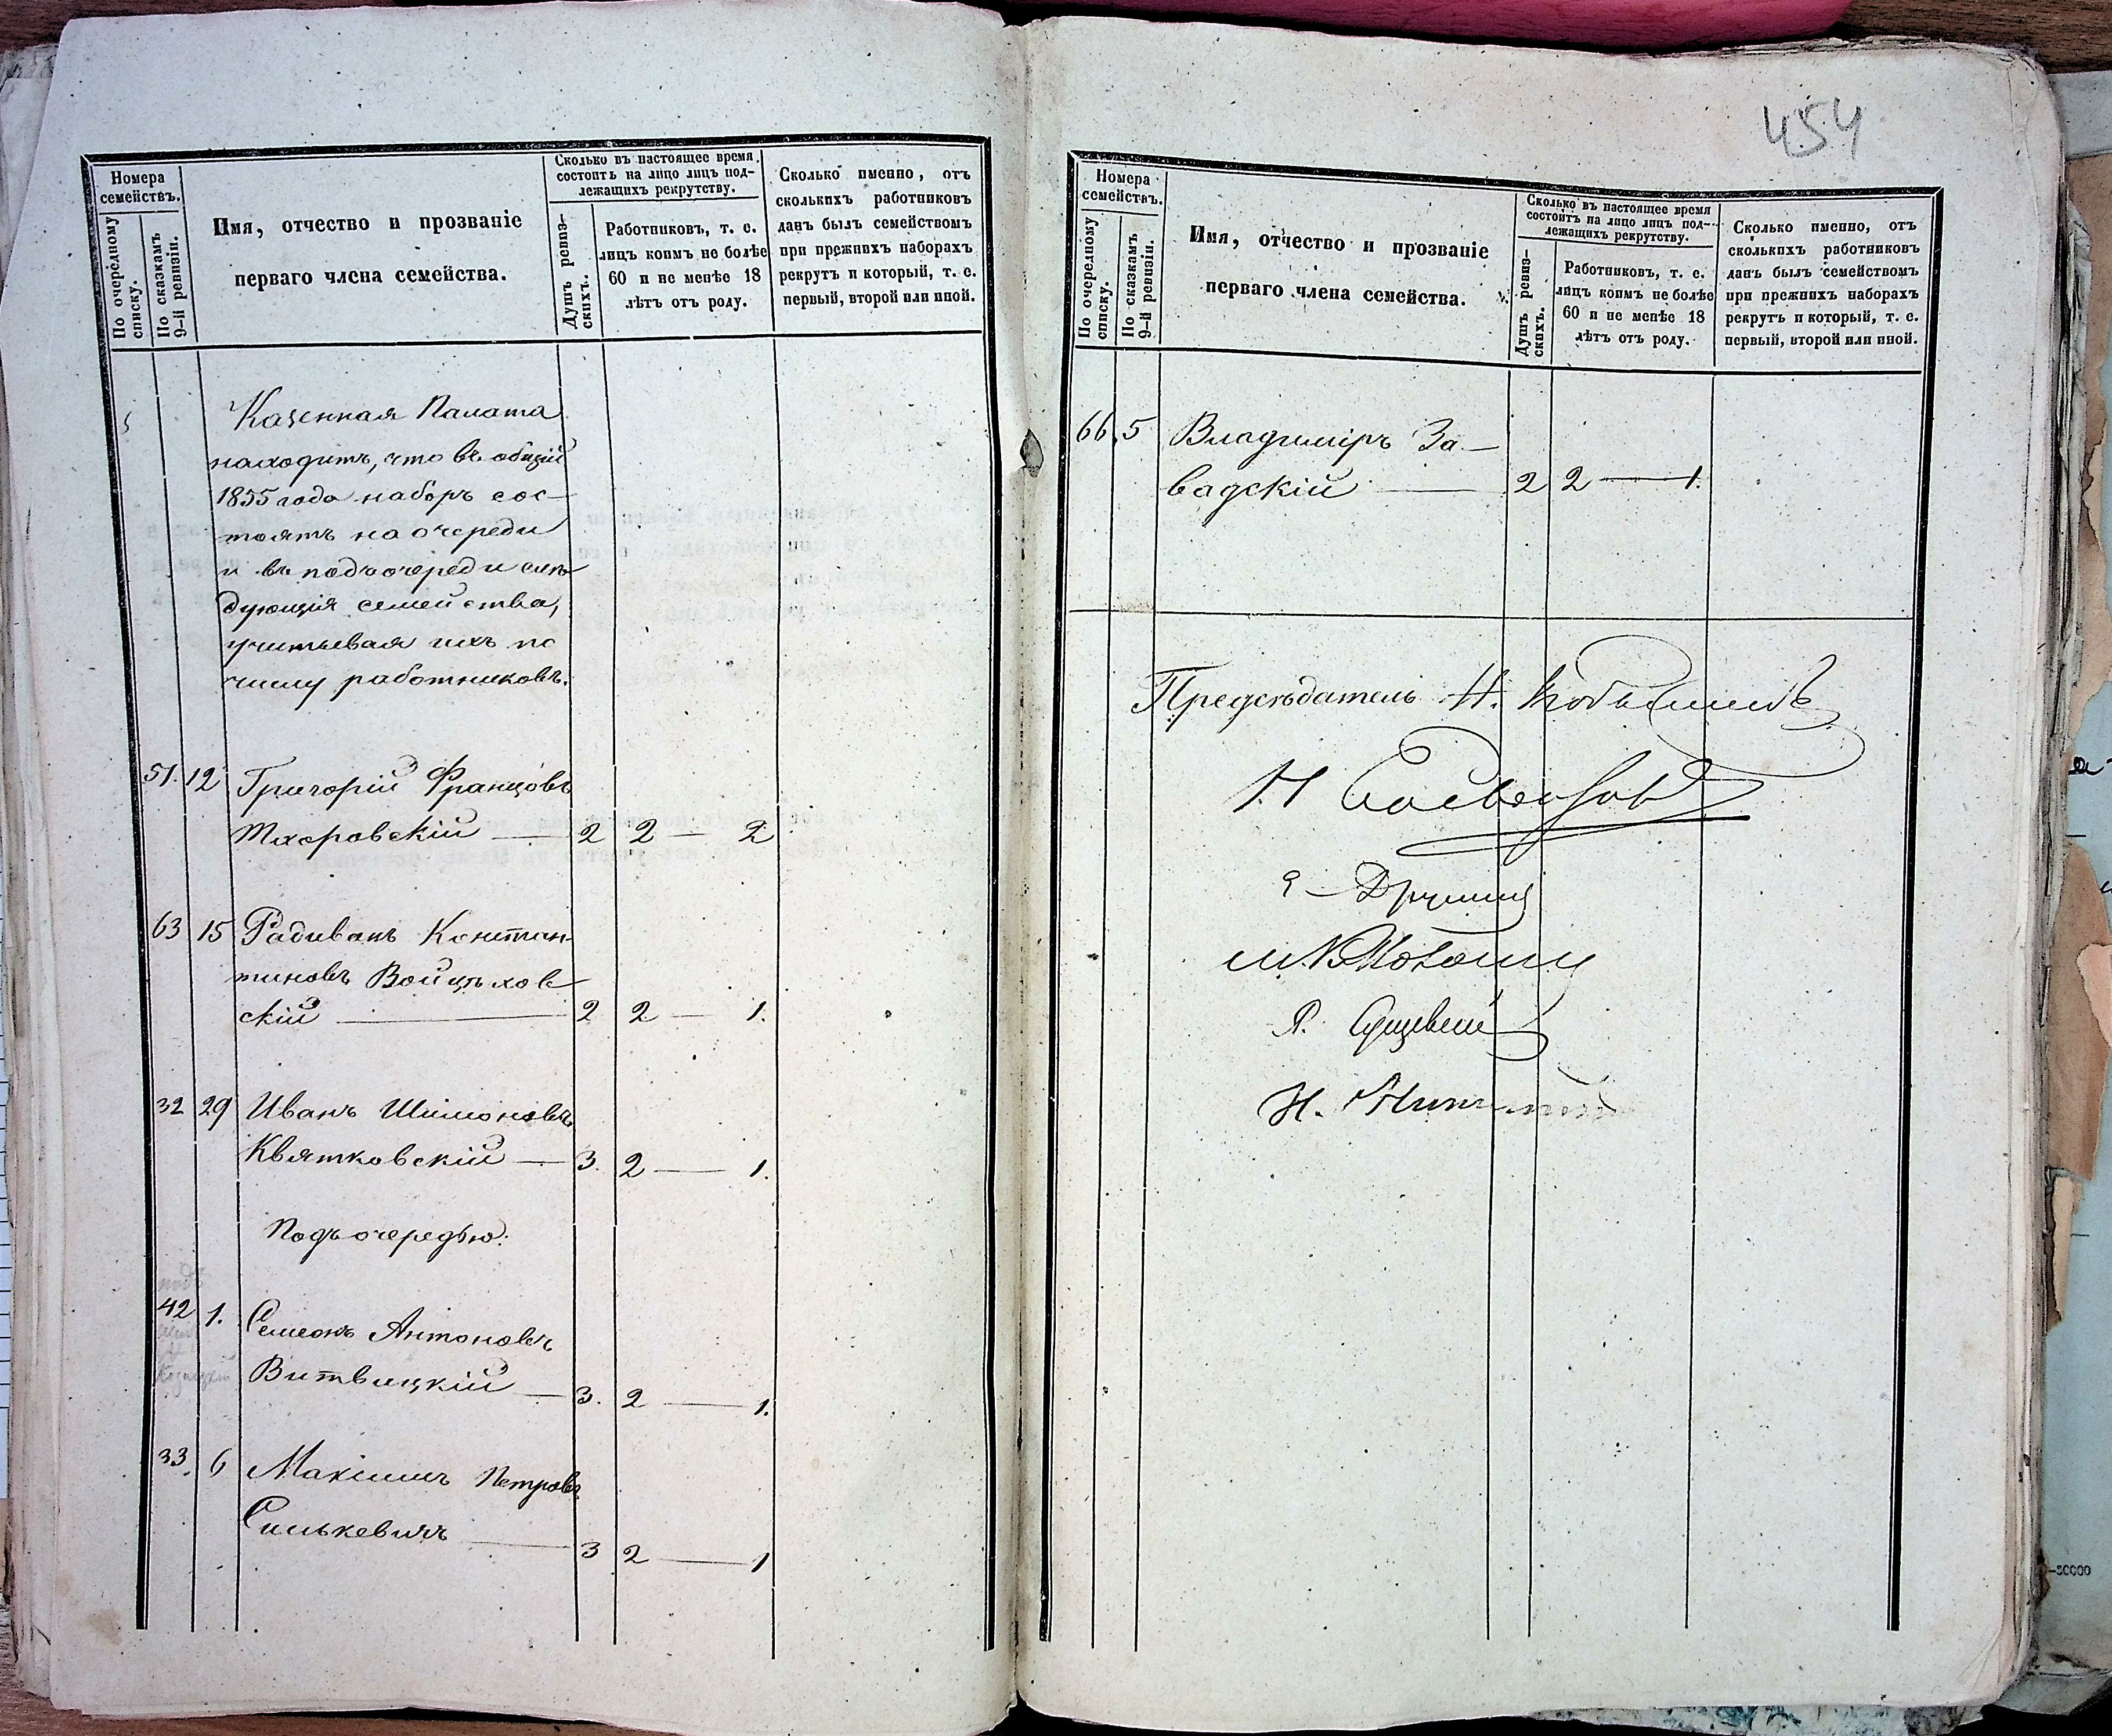 454
Номера
семействъ.
По очередному
списку.
По сказкамъ
9-й ревизіи.
Имя, отчество и прозваніе
перваго члена семейства.
Сколько въ настоящее время
состоитъ на лицо лицъ под-
лежащихъ рекрутству.
Душъ ревиз-
скихъ.
Работниковъ, т. е.
лицъ коимъ не болѣе
60 и не менѣе 18
лѣтъ отъ роду.
Сколько именно, отъ
сколькихъ работниковъ
данъ былъ семействомъ
при прежнихъ наборахъ
рекрутъ и который, т. е.
первый, второй или иной.
Казенная Палата
находитъ, что въ общій
1855 года наборъ сос-
тоятъ на очереди
и въ подъочереди слѣ-
дующія семейства,
учитывая ихъ по
числу работниковъ.
51. 12 Григорій Францовъ
Мазровскій — 2 2 — 2
63 15 Радиванъ Констан-
тиновъ Войцѣхов-
скій — 2 2 — 1.
32 29 Иванъ Шимоновъ
Квятковскій — 3. 2 — 1.
Подъочередью:
42 1. Семеонъ Антоновъ
Витвицкій — 3. 2 — 1.
33. 6 Максимъ Петровъ
Силькевичъ — 3 2 — 1
Номера
семействъ.
По очередному
списку.
По сказкамъ
9-й ревизіи.
Имя, отчество и прозваніе
перваго члена семейства.
Сколько въ настоящее время
состоитъ на лицо лицъ под-
лежащихъ рекрутству.
Душъ ревиз-
скихъ.
Работниковъ, т. е.
лицъ коимъ не болѣе
60 и не менѣе 18
лѣтъ отъ роду.
Сколько именно, отъ
сколькихъ работниковъ
данъ былъ семействомъ
при прежнихъ наборахъ
рекрутъ и который, т. е.
первый, второй или иной.
66. 5 Владиміръ За-
вадскій — 2 2 — 1.
Предсѣдатель Н.
50000